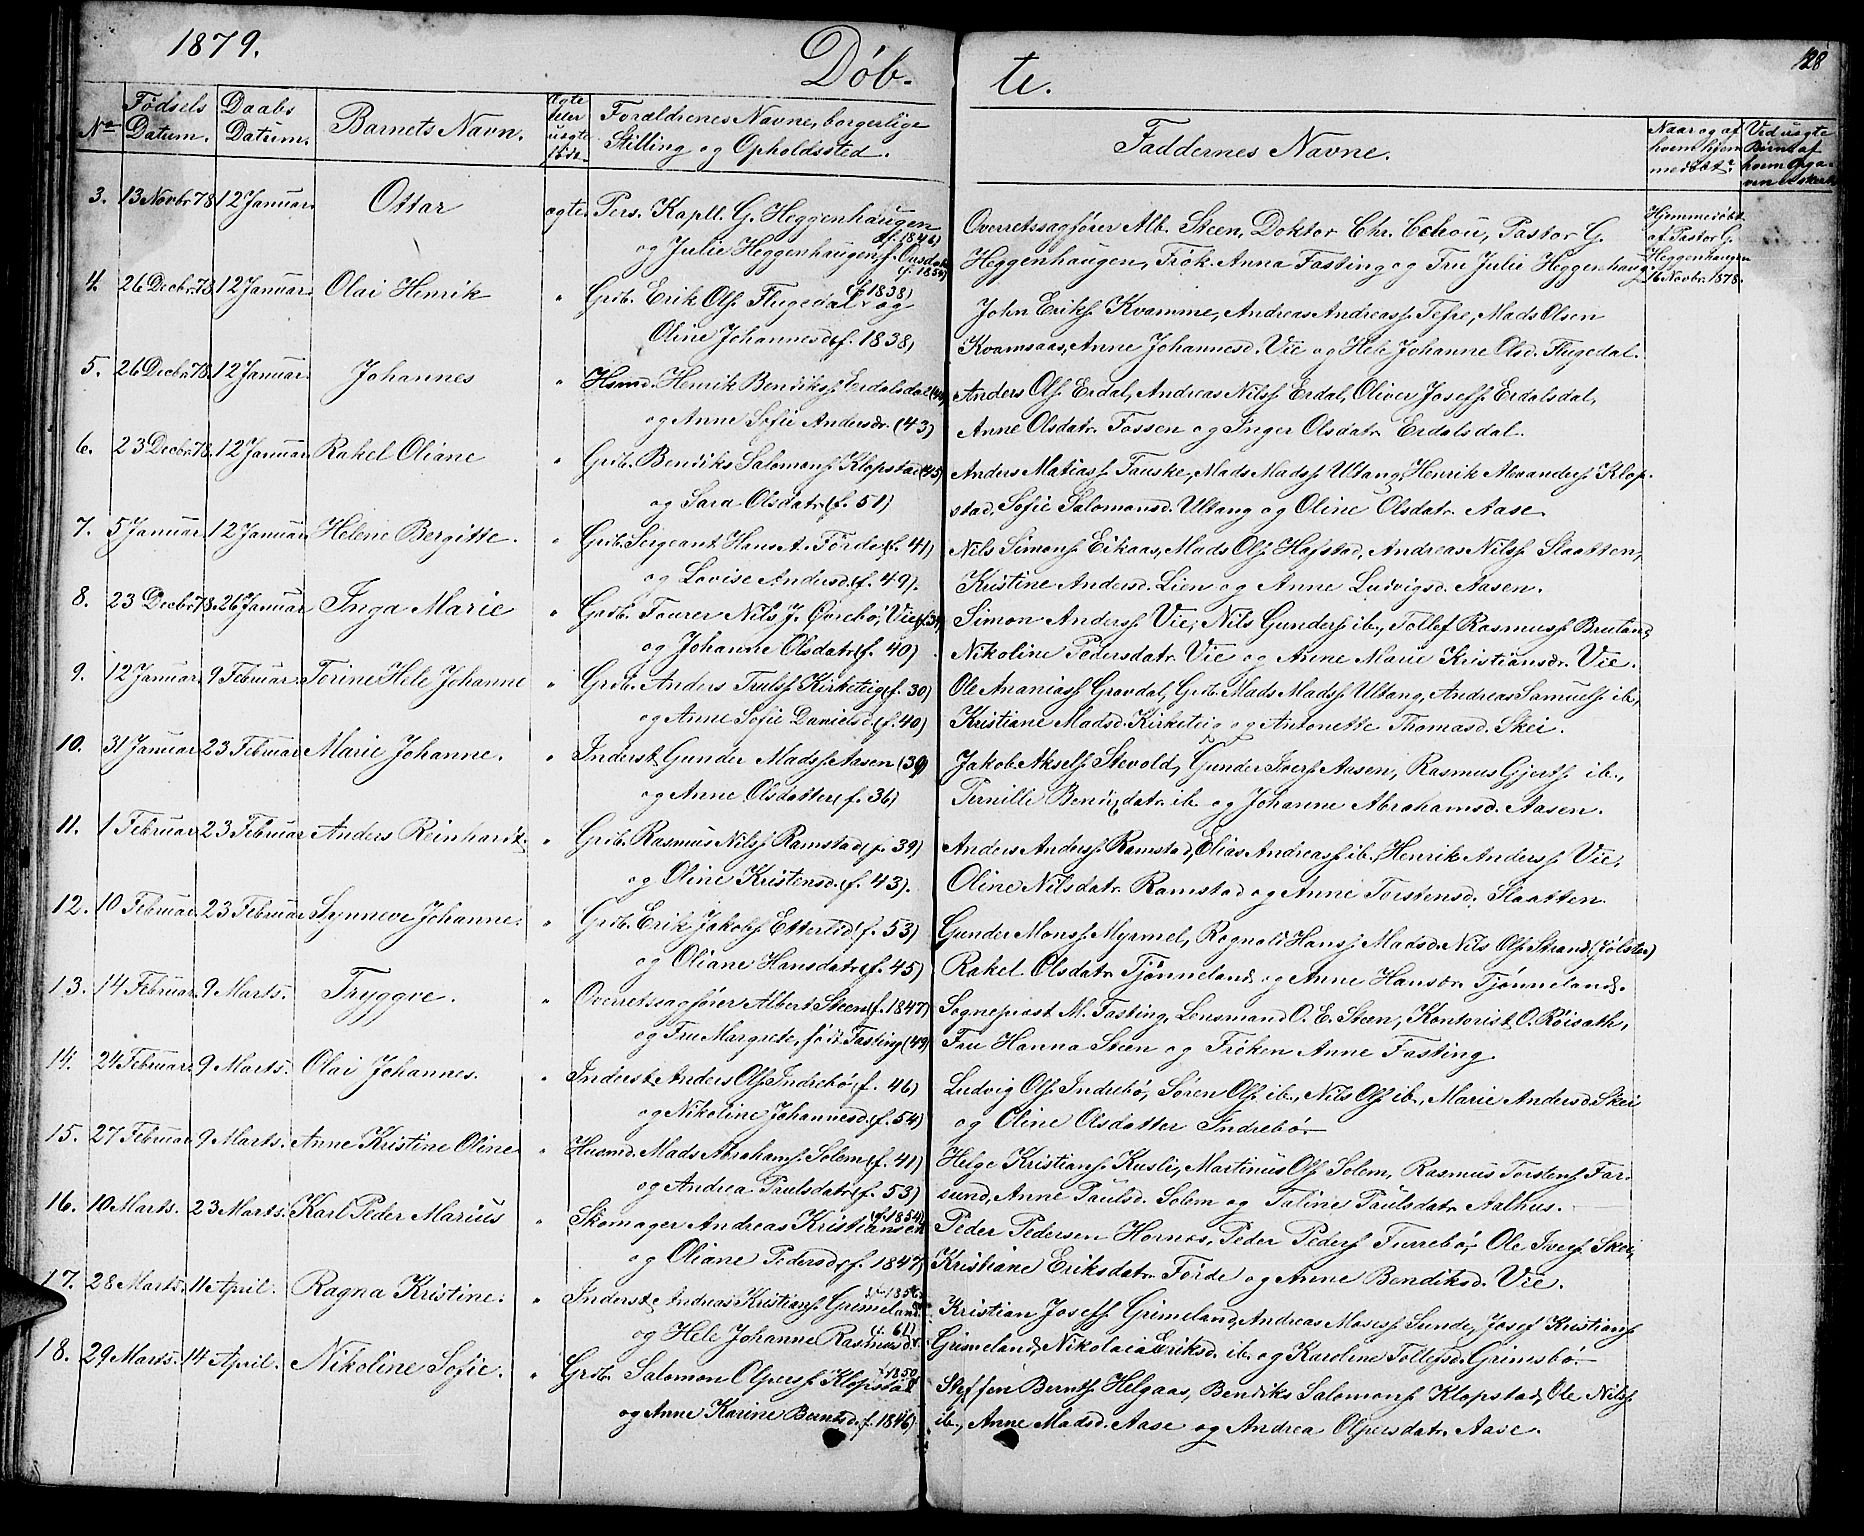 1879.
Døb-
te.
128
No
Fødsels Datum.
Daabs Datum.
Barnets Navn.
Ægte eller uægte
Forældrenes Navne, borgerlige
Stilling og Opholdssted.
Faddernes Navne.
Naar og af
hvem hjem-
medøbt?
Ved uægte
Børn af
hvem Opga-
ven
3. 13 Novbr 78 12 Januar. Ottar ægte. Pers. Kapll. G. Heggenhaugen (f. 1846)
og Julie Heggenhaugen, f. (f. 1854)
Overretssagfører Alb. Steen, Doktor Chr. Pastor G.
Heggenhaugen, Frøk. Anna Fasting og Fru Julie Heggenhaugen
Hjemmedøbt
af Pastor G.
Heggenhaugen
16 Novbr. 1878.
4. 26 Decbr. 78 12 Januar. Olai Henrik " Grdb. Erik Ols. Flugedal (f. 1838) og
Oline Johannesd. (f. 1838)
John Eriks. Kvamme, Andreas Andreass. Tefre, Mads Olsen
Kvamsaas, Anne Johannesd. Vie og Hele Johanne Olsd. Flugedal.
5. 26 Decbr. 78. 12 Januar. Johannes " Hsmd. Henrik Bendikss. Erdalsdal
og Anne Sofie Andersdr. (43)
Anders Ols. Erdal, Andreas Nilss. Erdal, Oliver Josefs. Erdalsdal,
Anne Olsdatr. Fossen og Inger Olsdatr. Erdalsdal.
6. 23 Decbr. 78. 12 Januar. Rakel Oliane " Grdb. Bendiks Salomons. Klopstad (45)
og Sara Olsdatr. (f. 51)
Anders Matiass. Tauske, Mads Madss. Ultang, Henrik Alexanders. Klop-
stad, Sofie Salomonsd. Ultang og Oline Olsdatr. Aase.
7. 5 Januar. 12 Januar. Helene Bergitte. " Grdb. Sergeant Hans A. Førde (f. 41)
og Lovise Andersd. (f. 49).
Nils Simons. Eikaas, Mads Ols. Hafstad, Andreas Nilss. Slaatten,
Kristine Andersd. Lien og Anne Ludvigsd. Aasen.
8. 23 Decbr. 78. 26 Januar. Inga Marie " Grdb. Fourer Nils J. Øvrebø, Vie (f. 39)
og Johanne Olsdatr. (f. 40)
Simon Anderss. Vie, Nils Gunders. ib., Tollef Rasmuss. Bruland,
Nikoline Pedersdatr. Vie og Anne Marie Kristiansdr. Vie.
9. 12 Januar. 9 Februar. Terine Hele Johanne " Grdb. Anders Trulss. Kirketeig (f. 30)
og Anne Sofie Danielsd. (f. 40)
Ole Ananiass. Gravdal, Grdb. Mads Madss. Ultang, Andreas Samuels. ib.,
Kristiane Madsd. Kirketeig og Antonette Thomasd. Skei.
10. 31 Januar. 23 Februar. Marie Johanne. " Inderst Gunder Madss. Aasen (39)
og Anne Olsdatter (f. 36)
Jakob Aksels. Stevold, Gunder Ivers. Aasen, Rasmus Gjerts. ib.,
Pernille datr. ib. og Johanne Abrahamsd. Aasen.
11. 1 Februar. 23 Februar. Anders Reinhardt. " Grdb. Rasmus Nilss. Ramstad (f. 39)
og Oline Kristensd. (f. 43).
Anders Anderss. Ramstad, Elias Andreass. ib. Henrik Anderss. Vie,
Oline Nilsdatr. Ramstad og Anne Torstensd. Slaatten.
12. 10 Februar. 23 Februar. Synneve Johanne. " Grdb. Erik Jakobs. Etterlid (f. 53)
og Oliane Hansdatr. (f. 45)
Gunder Monss. Myrmel, Ragnald Hans. Nils Ols. Strand (Jølster)
Rakel Olsdatr. Tjønneland og Anne Hansdr. Tjønneland.
13. 14 Februar. 9 Marts. Tryggve. " Overretssagfører Albert Steen (f. 1847)
og Fru Margrete, født Fasting (49)
Sogneprost M. Fasting, Lensmand O. E. Steen, Kontorist O. Røisath,
Fru Hanna Steen og Frøken Anne Fasting.
14. 24 Februar. 9 Marts. Olai Johannes. " Inderst Anders Ols. Indrebø (f. 46)
og Nikoline Johannesd. (f. 54)
Ludvig Ols. Indrebø, Søren Ols. ib., Nils Ols. ib., Marie Andersd. Skei
og Oline Olsdatter Indrebø.
15. 27 Februar. 9 Marts. Anne Kristine Oline " Husmd. Mads Abrahams. Solem (f. 41)
og Andrea Paulsdatr. (f. 53)
Helge Kristians. Kusli, Martinus Ols. Solem, Rasmus Torstens. Far-
sund, Anne Paulsd. Solem og Taline Paulsdatr. Aalhus.
16. 10 Marts. 23 Marts. Karl Peder Marius " Skomager Andreas Kristiansen (f. 1854)
og Oliane Pedersd. (f. 1847)
Peder Pedersen Hornes, Peder Peders. Furrebø, Ole Ivers. Skei,
Kristiane Eriksdatr. Førde og Anne Bendiksd. Vie.
17. 28 Marts. 14 April. Ragna Kristine. " Inderst Andreas Kristians. Grimeland
og Hele Johanne Rasmusd. (f. 61)
Kristian Josefs. Grimeland, Andreas Moses. Sunde, Josef Kristians.
Grimeland, Nikolaia Eriksd. ib. og Karoline Tollefsd. Grimsbø.
18. 29 Marts. 14 April. Nikoline Sofie. " Grdb. Salomon Olpers. Klopstad (f. 1850
og Anne Karine Berntsd. (f. 1846)
Steffen Bernts. Helgaas, Bendiks Salomons. Klopstad, Ole Nilss.
ib., Anne Madsd. Aase og Andrea Olpersdatr. Aase.